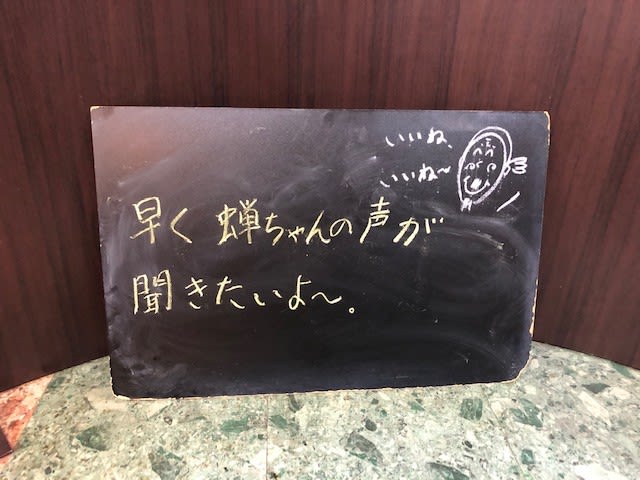 いいね、
いいね〜
早く蝉ちゃんの声が
聞きたいよ〜。